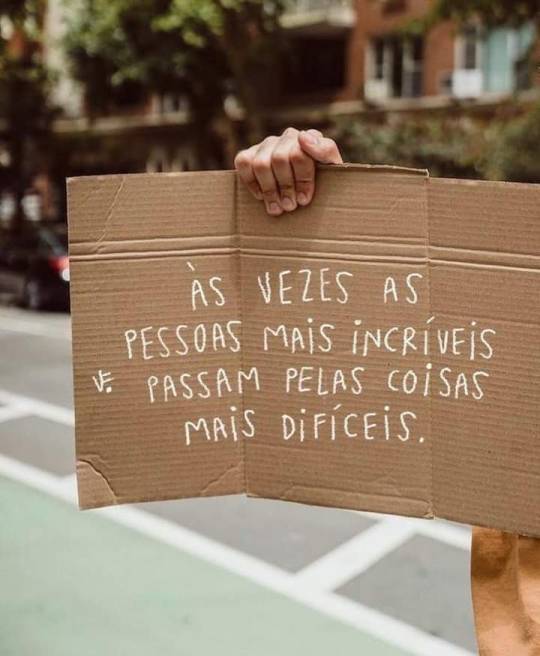 ÀS VEZES AS
PESSOAS MAIS INCRÍVEIS
VF. PASSAM PELAS COISAS
MAIS DIFÍCEIS.